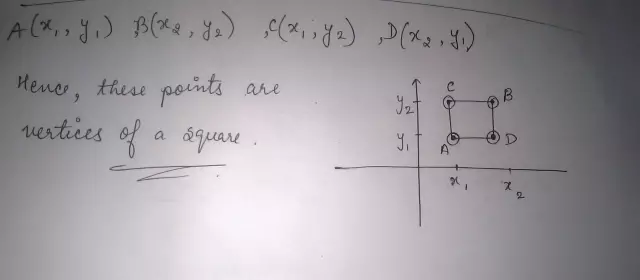 A(x₁, y₁) ,B(x₂, y₂) ,C(x₁, y₂) ,D(x₂, y₁)
Hence, these points are
vertices of a square.
C
y₂ B
y₁ D
A
x₁ x₂